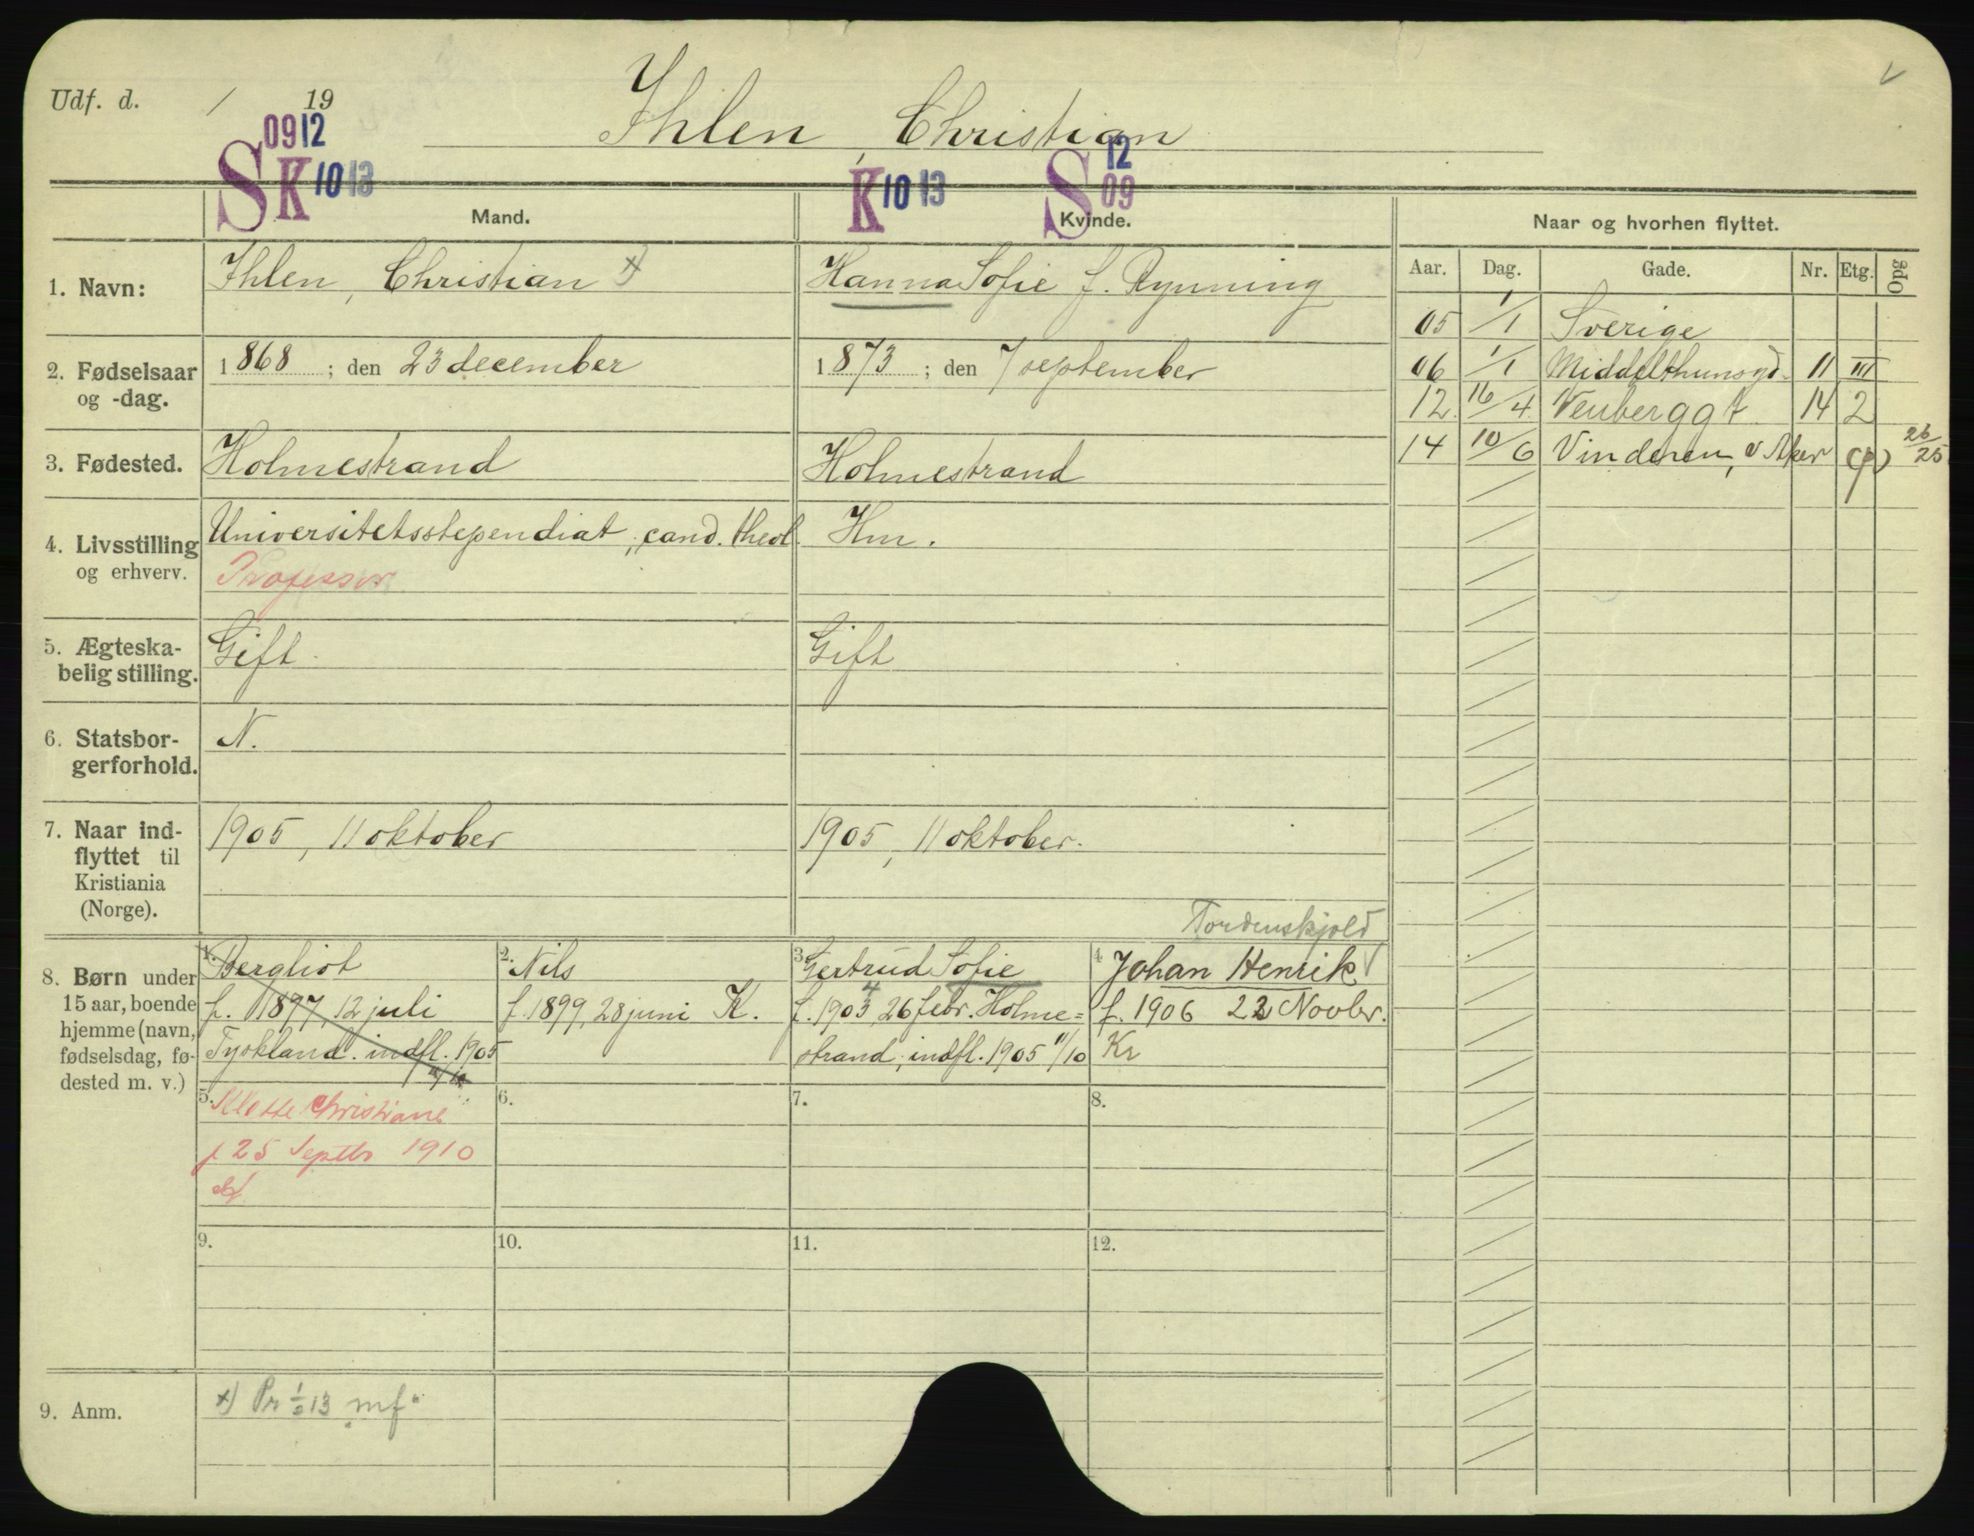 Udf. d. / 19
Ihlen, Christian
S 0912 K 10 13
K 10 13 S 12 09
Mand.
Kvinde.
Naar og hvorhen flyttet.
Aar. Dag. Gade. Nr. Etg. Opg
1. Navn:
Ihlen, Christian x)
Hanna Sofie f. Rynning
2. Fødselsaar og -dag.
1868 ; den 23 december
1873 ; den 7 september
3. Fødested.
Holmestrand
Holmestrand
4. Livsstilling og erhverv.
Universitetsstipendiat, cand. theol.
Professor
Hm.
5. Ægteska-
belig stilling.
Gift
Gift
6. Statsbor-
gerforhold.
N.
7. Naar ind-
flyttet til
Kristiania
(Norge).
1905, 11 oktober
1905, 11 oktober.
05 1/1 Sverige
06 1/1 Middelthunsgd. 11 III
12 16/4 14 2
14 10/6 Vinderen, v Aker (p) 26/25
8. Børn under
15 aar, boende
hjemme (navn,
fødselsdag, fø-
dested m. v.)
1. Bergliot
f. 1897, 12 juli
Tyskland. indfl. 1905
2. Nils
f. 1899, 28 juni K.
3. Gertrud Sofie
f. 1903 4 26 febr. Holme=
strand, indfl. 1905 11/10
Tordenskjold
4. Johan Henrik
f. 1906 22 Novbr.
Kr
5. Christiane
f 25 Septbr 1910
6.
7.
8.
9.
10.
11.
12.
9. Anm.
x) Pr 1/2 13 mf